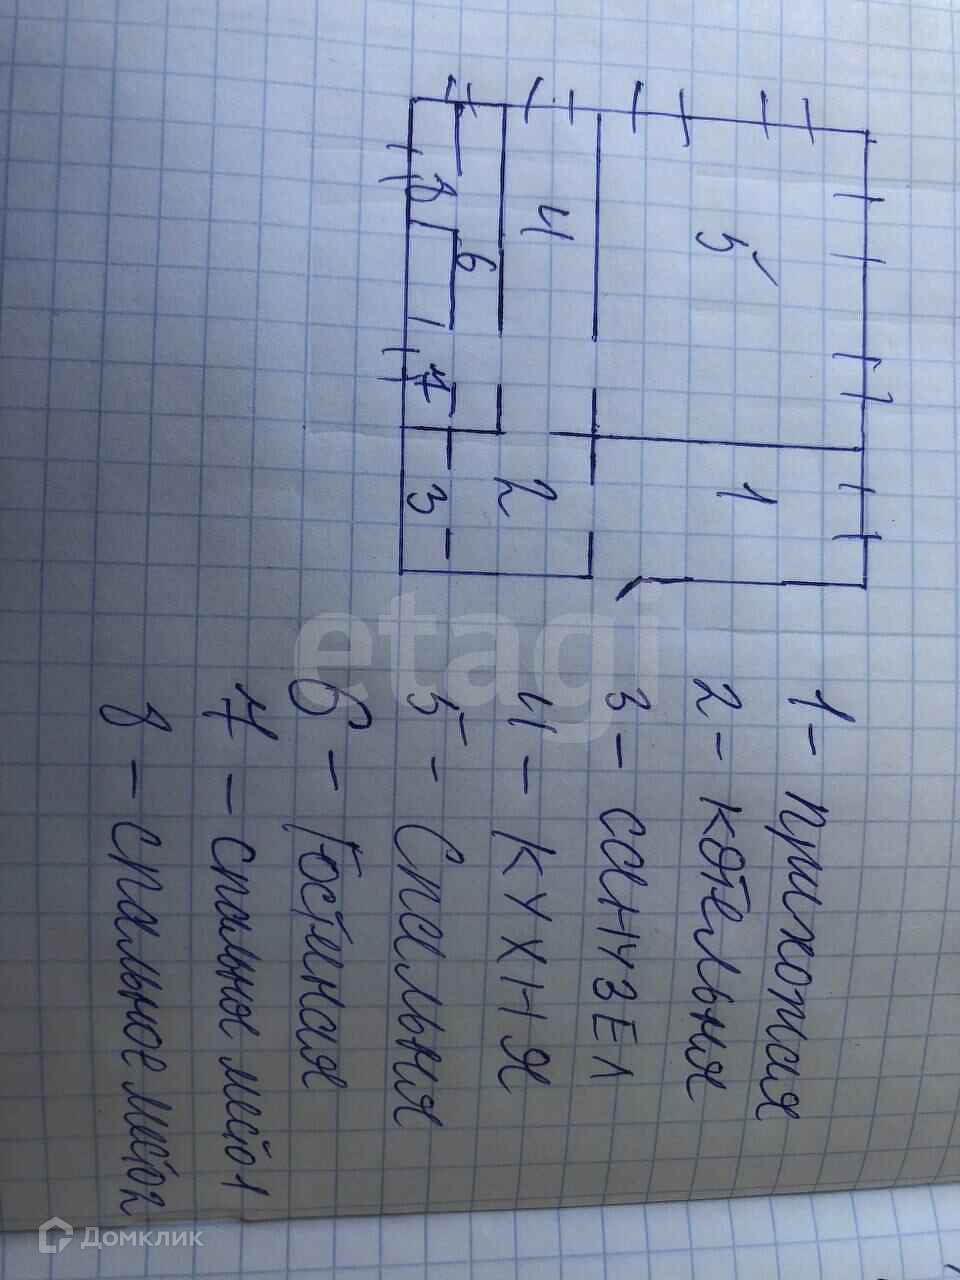 5
1
4
2
8
6
7
3
1 - Прихожая
2 - котельня
3 - санузел
4 - кухня
5 - Спальня
6 - Гостиная
7 - спальное место 1
8 - спальное место 2
etagi
Домклик